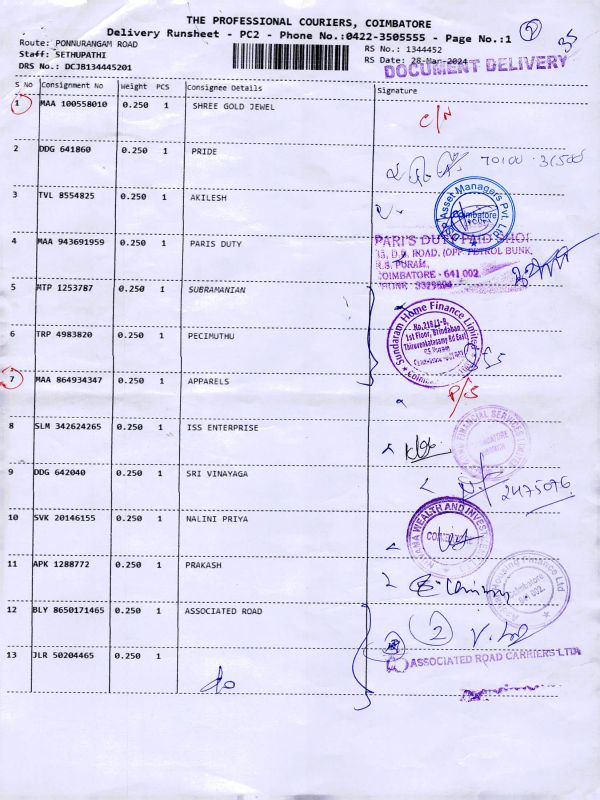 THE PROFESSIONAL COURIERS, COIMBATORE
Delivery Runsheet - PC2 - Phone No.:0422-3505555 - Page No.:1
2
35
Route: PONNURANGAM ROAD
RS No.: 1344452
Staff: SETHUPATHI
RS Date: 28-Mar-2024
DRS No.: DCJB134445201
DOCUMENT DELIVERY
S No Consignment No Weight PCS Consignee Details Signature
1 MAA 100558010 0.250 1 SHREE GOLD JEWEL
C/N
2 DDG 641860 0.250 1 PRIDE
70100
3 TVL 8554825 0.250 1 AKILESH
Asset Managers Pvt. Ltd
Coimbatore
4 MAA 943691959 0.250 1 PARIS DUTY
PARI'S DUTY PAID SHOP
D.B. ROAD, (OPP. PETROL BUNK,
R.S. PURAM,
COIMBATORE - 641 002.
5 MTP 1253787 0.250 1 SUBRAMANIAN
Sundaram Home Finance Limited
1st Floor, Brindaban
Thiruvenkatasamy Rd East
6 TRP 4983820 0.250 1 PECIMUTHU
7 MAA 864934347 0.250 1 APPARELS
P/S
8 SLM 342624265 0.250 1 ISS ENTERPRISE
FINANCIAL SERVICES
9 DDG 642040 0.250 1 SRI VINAYAGA
2475096
10 SVK 20146155 0.250 1 NALINI PRIYA
WEALTH AND INVEST
11 APK 1288772 0.250 1 PRAKASH
Housing Finance Ltd
Coimbatore
641 002.
12 BLY 8650171465 0.250 1 ASSOCIATED ROAD
2
13 JLR 50204465 0.250 1
do
ASSOCIATED ROAD CARRIERS LTD